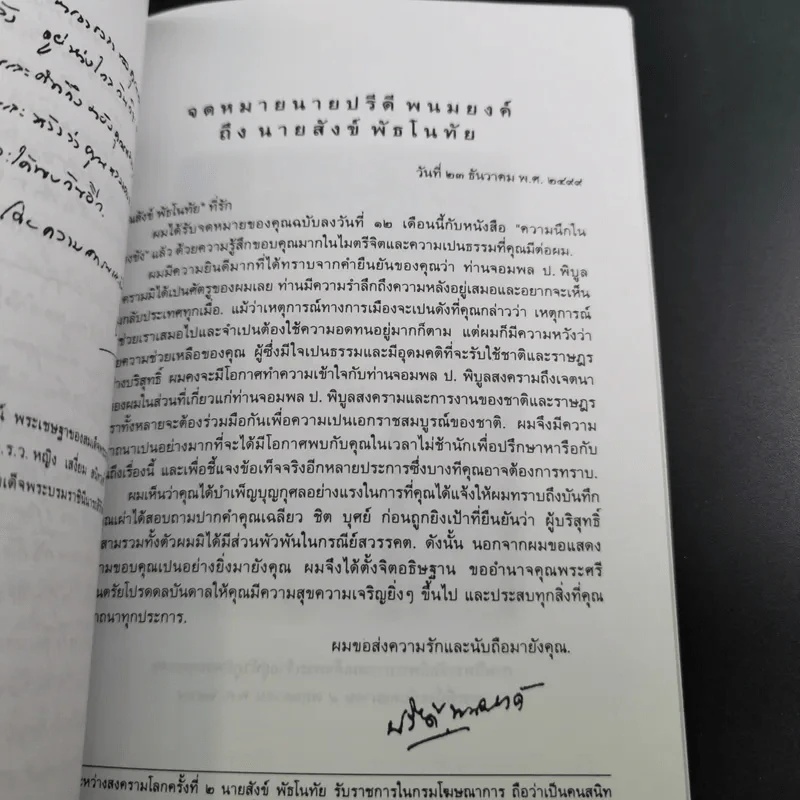 จดหมายนายปรีดี พนมยงค์
ถึง นายสังข์ พัธโนทัย
วันที่ ๒๓ ธันวาคม พ.ศ. ๒๔๙๙
นสังข์ พัธโนทัย" ที่รัก
ผมได้รับจดหมายของคุณฉบับลงวันที่ ๑๒ เดือนนี้กับหนังสือ "ความนึกใน
งขัง" แล้ว ด้วยความรู้สึกขอบคุณมากในไมตรีจิตและความเปนธรรมที่คุณมีต่อผม.
ผมมีความยินดีมากที่ได้ทราบจากคำยืนยันของคุณว่า ท่านจอมพล ป. พิบูล
ครามมิได้เปนศัตรูของผมเลย ท่านมีความรำลึกถึงความหลังอยู่เสมอและอยากจะเห็น
กลับประเทศทุกเมื่อ. แม้ว่าเหตุการณ์ทางการเมืองจะเปนดังที่คุณกล่าวว่า เหตุการณ์
ช่วยเราเสมอไปและจำเปนต้องใช้ความอดทนอยู่มากก็ตาม แต่ผมก็มีความหวังว่า
ยความช่วยเหลือของคุณ ผู้ซึ่งมีใจเปนธรรมและมีอุดมคติที่จะรับใช้ชาติและราษฎร
างบริสุทธิ์ ผมคงจะมีโอกาศทำความเข้าใจกับท่านจอมพล ป. พิบูลสงครามถึงเจตนา
องผมในส่วนที่เกี่ยวแก่ท่านจอมพล ป. พิบูลสงครามและการงานของชาติและราษฎร
ราทั้งหลายจะต้องร่วมมือกันเพื่อความเปนเอกราชสมบูรณ์ของชาติ. ผมจึงมีความ
ถนาเปนอย่างมากที่จะได้มีโอกาศพบกับคุณในเวลาไม่ช้านักเพื่อปรึกษาหารือกับ
ถึงเรื่องนี้ และเพื่อชี้แจงข้อเท็จจริงอีกหลายประการซึ่งบางทีคุณอาจต้องการทราบ.
ผมเห็นว่าคุณได้บำเพ็ญบุญกุศลอย่างแรงในการที่คุณได้แจ้งให้ผมทราบถึงบันทึก
ณเผ่าได้สอบถามปากคำคุณเฉลียว ชิต บุศย์ ก่อนถูกยิงเป้าที่ยืนยันว่า ผู้บริสุทธิ์
สามรวมทั้งตัวผมมิได้มีส่วนพัวพันในกรณีย์สวรรคต. ดังนั้น นอกจากผมขอแสดง
ามขอบคุณเปนอย่างยิ่งมายังคุณ ผมจึงได้ตั้งจิตอธิษฐาน ขออำนาจคุณพระศรี
นตรัยโปรดดลบันดาลให้คุณมีความสุขความเจริญยิ่งๆ ขึ้นไป และประสบทุกสิ่งที่คุณ
าถนาทุกประการ.
ผมขอส่งความรักและนับถือมายังคุณ.
ปรีดี พนมยงค์
ะหว่างสงครามโลกครั้งที่ ๒ นายสังข์ พัธโนทัย รับราชการในกรมโฆษณาการ ถือว่าเป็นคนสนิท